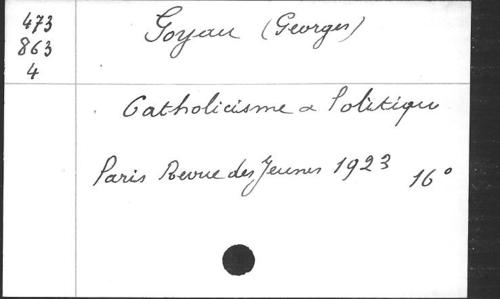 473
863
4
Goyau (Georges)
Catholicisme & Politique
Paris Revue des Jeunes 1923 16°